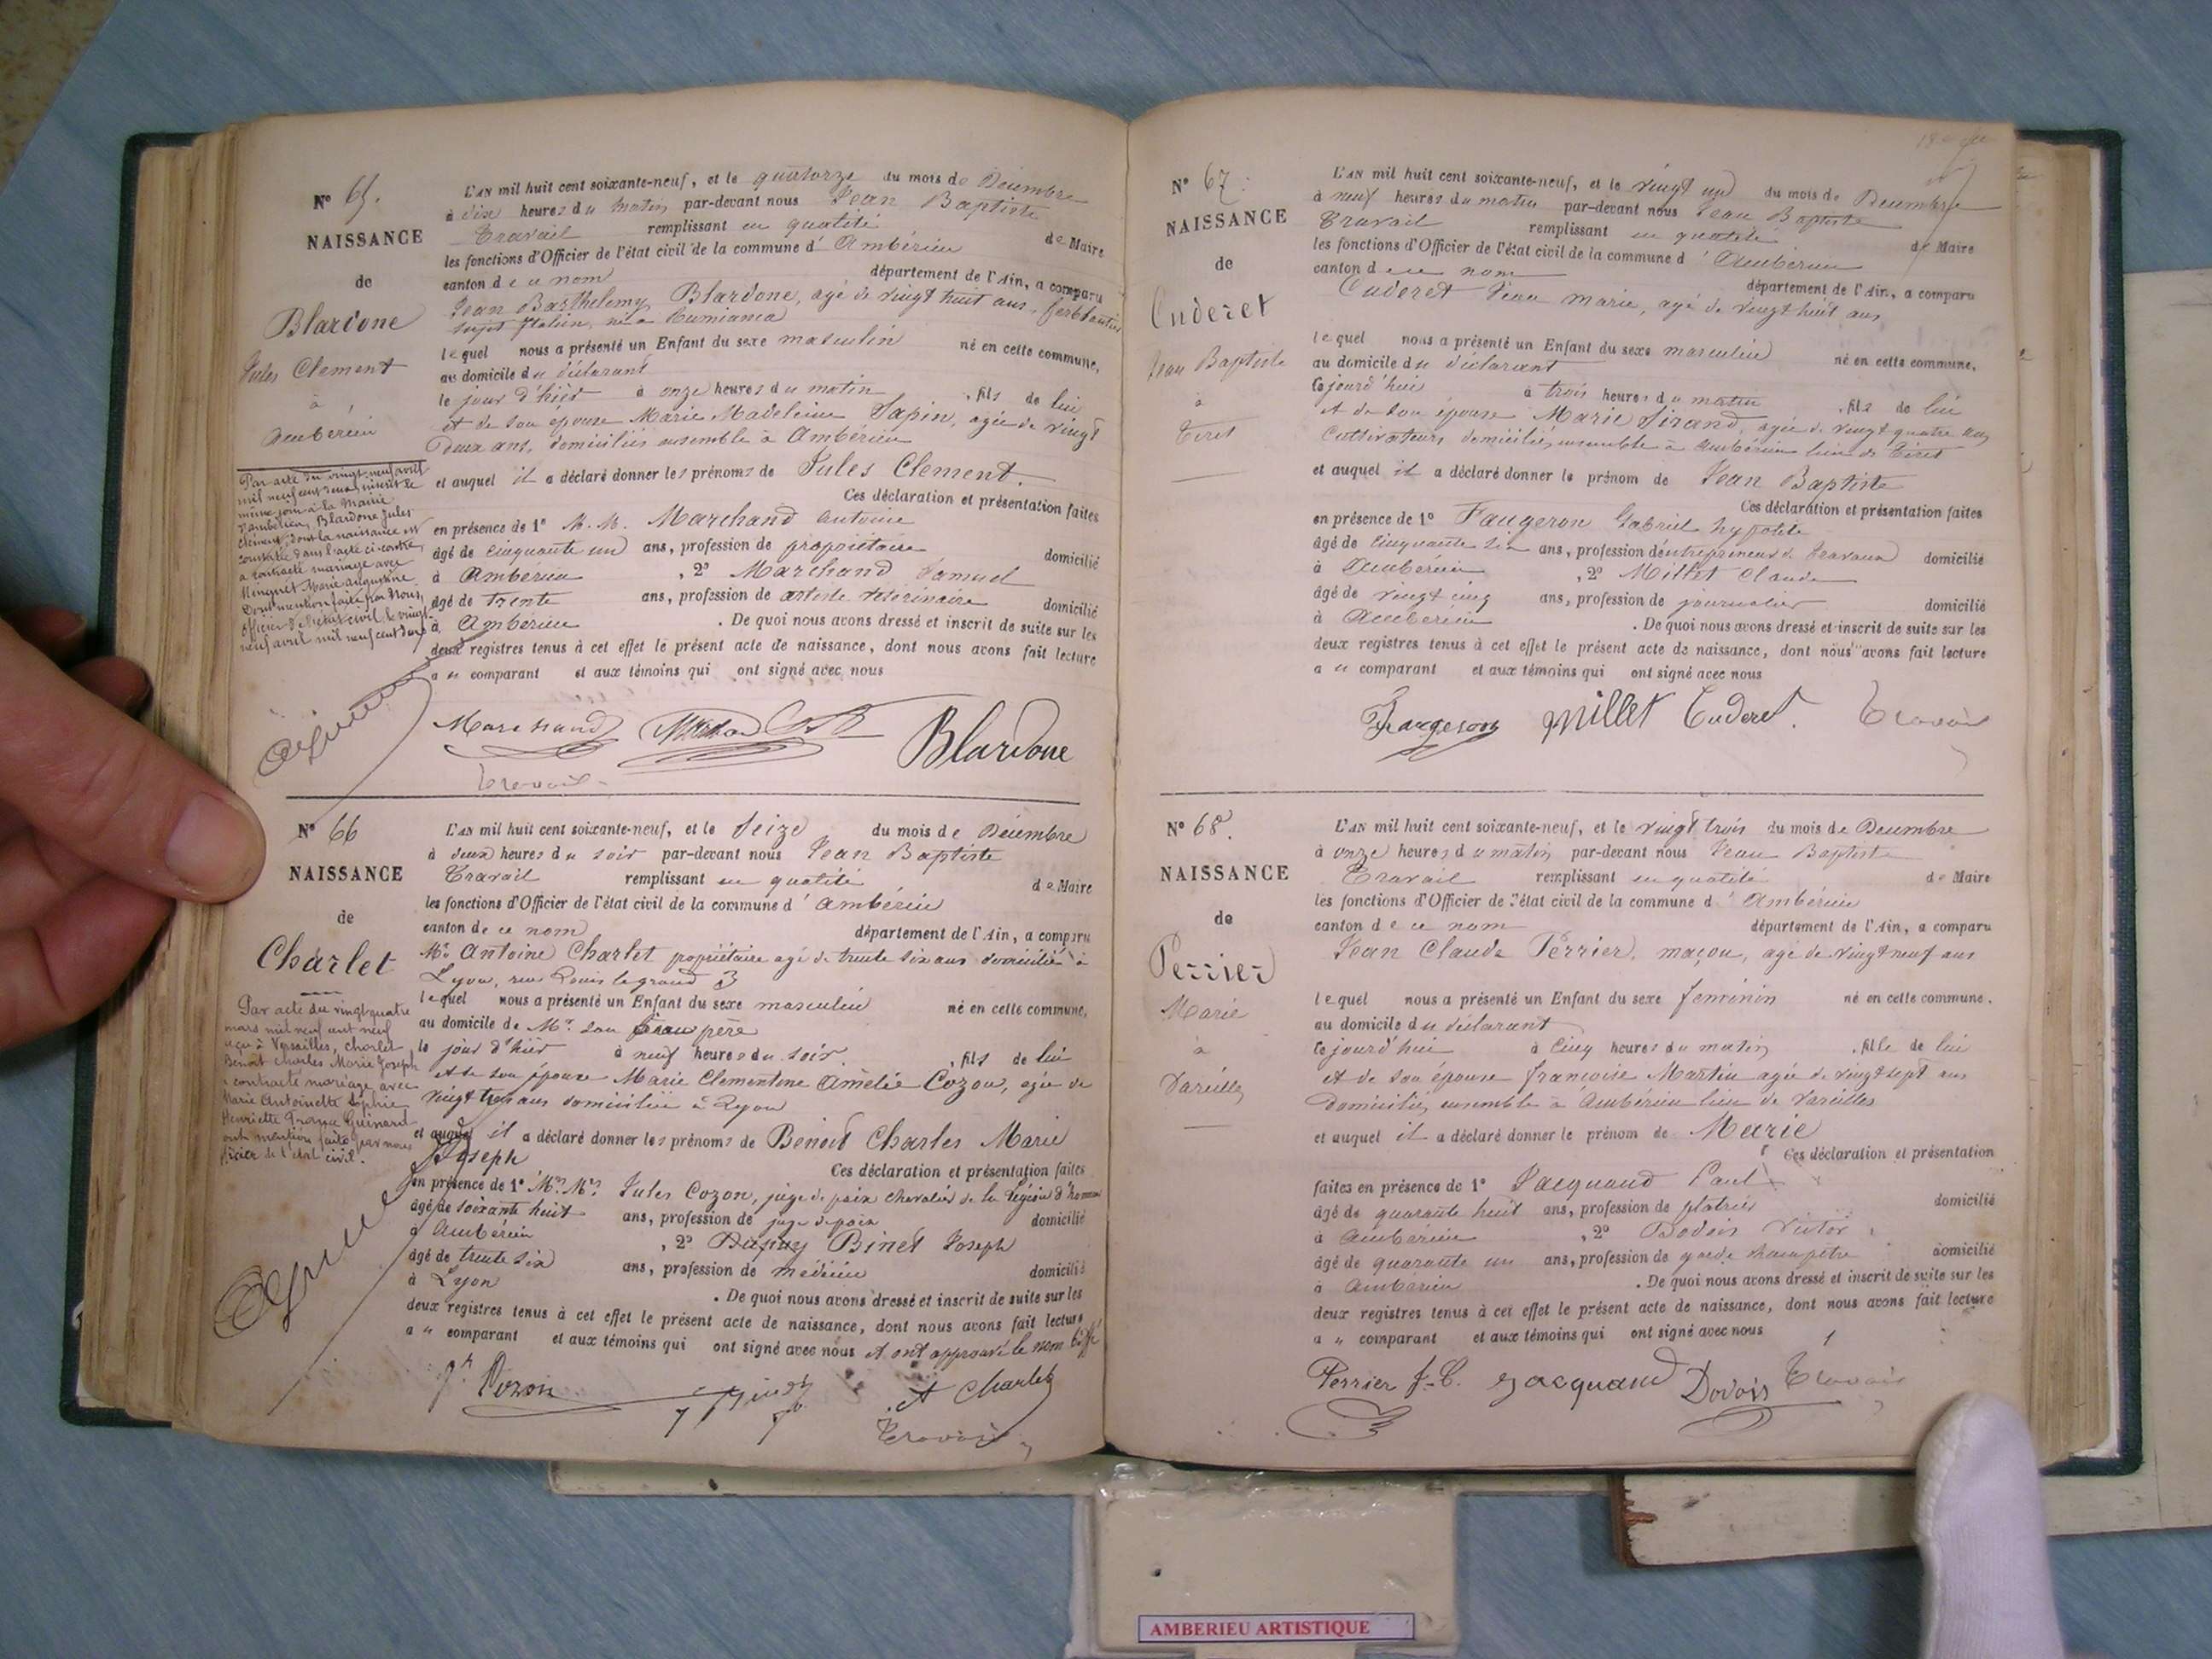 N° 65.
NAISSANCE
de
Blardone
Jules Clement
à
Ambérieu
Par acte du vingt-neuf avril
mil neuf cent douze, inscrit le
même jour à la Mairie
d'Ambérieu, Blardone Jules
Clément, dont la naissance est
constatée dans l'acte ci-contre,
a contracté mariage avec
Minguet Marie Augustine
Dont mention faite par Nous,
officier de l'état civil le vingt-
neuf avril mil neuf cent douze
L'AN mil huit cent soixante-neuf, et le quatorze du mois de Décembre
à dix heures du matin par-devant nous Jean Baptiste
Travail remplissant en qualité de Maire
les fonctions d'Officier de l'état civil de la commune d'Ambérieu
canton de ce nom département de l'Ain, a comparu
Jean Barthelemy Blardone, agé de vingt huit ans, ferblantier
sujet Italien, né à Cumiania
lequel nous a présenté un Enfant du sexe masculin né en cette commune,
au domicile du déclarant
le jour d'hier à onze heures du matin, fils de lui
et de son épouse Marie Madeleine Sapin, agée de vingt
deux ans, domiciliés ensemble à Ambérieu
et auquel il a déclaré donner les prénoms de Jules Clement.
Ces déclaration et présentation faites
en présence de 1° M.M. Marchand Antoine
âgé de cinquante un ans, profession de propriétaire domicilié
à Ambérieu, 2° Marchand Samuel
âgé de trente ans, profession de artiste vétérinaire domicilié
à Ambérieu. De quoi nous avons dressé et inscrit de suite sur les
deux registres tenus à cet effet le présent acte de naissance, dont nous avons fait lecture
au comparant et aux témoins qui ont signé avec nous
Marchand Blardone
Travail
N° 66
NAISSANCE
de
Charlet
Par acte du vingt quatre
mars mil neuf cent neuf
reçu à Versailles, Charlet
Benoit Charles Marie Joseph
a contracté mariage avec
Marie Antoinette Sophie
Henriette Guinard
dont mention faite par nous
officier de l'état civil.
L'AN mil huit cent soixante-neuf, et le Seize du mois de Décembre
à deux heures du soir par-devant nous Jean Baptiste
Travail remplissant en qualité de Maire
les fonctions d'Officier de l'état civil de la commune d'Ambérieu
canton de ce nom département de l'Ain, a comparu
Mr Antoine Charlet propriétaire agé de trente six ans domicilié à
Lyon, rue Louis legrand 3
lequel nous a présenté un Enfant du sexe masculin né en cette commune,
au domicile de Mr. son beau père
le jour d'hier à neuf heures du soir, fils de lui
et de son épouse Marie Clementine Amélie Cozon, agée de
vingt trois ans domiciliée à Lyon
et auquel il a déclaré donner les prénoms de Benoit Charles Marie
Joseph
Ces déclaration et présentation faites
en présence de 1° Mrs Mrs Jules Cozon, juge de paix chevalier de la Légion d'honneur
âgé de soixante huit ans, profession de juge de paix domicilié
à Ambérieu, 2° Dupuy Binet Joseph
âgé de trente six ans, profession de médecin domicilié
à Lyon. De quoi nous avons dressé et inscrit de suite sur les
deux registres tenus à cet effet le présent acte de naissance, dont nous avons fait lecture
au comparant et aux témoins qui ont signé avec nous et ont approuvé le nom biffé
Cozon A Charlet
Travail
N° 67
NAISSANCE
de
Cuderet
Jean Baptiste
à
Tiret
L'AN mil huit cent soixante-neuf, et le vingt un du mois de Décembre
à neuf heures du matin par-devant nous Jean Baptiste
Travail remplissant en qualité de Maire
les fonctions d'Officier de l'état civil de la commune d'Ambérieu
canton de ce nom département de l'Ain, a comparu
Cuderet Jean marie, agé de vingt huit ans
lequel nous a présenté un Enfant du sexe masculin né en cette commune,
au domicile du déclarant
Cejourd'hui à trois heures du matin, fils de lui
et de son épouse Marie Sirand, agée de vingt quatre ans
Cultivateurs domiciliés ensemble à Ambérieu lieu de Tiret
et auquel il a déclaré donner le prénom de Jean Baptiste
Ces déclaration et présentation faites
en présence de 1° Faugeron Gabriel hypolite
âgé de cinquante six ans, profession d'entrepreneur de travaux domicilié
à Ambérieu, 2° Millet Claude
âgé de vingt cinq ans, profession de journalier domicilié
à Ambérieu. De quoi nous avons dressé et inscrit de suite sur les
deux registres tenus à cet effet le présent acte de naissance, dont nous avons fait lecture
au comparant et aux témoins qui ont signé avec nous
Faugeron Millet Cuderet. Travail
N° 68.
NAISSANCE
de
Perrier
Marie
à
Vareilles
L'AN mil huit cent soixante-neuf, et le vingt trois du mois de Décembre
à onze heures du matin par-devant nous Jean Baptiste
Travail remplissant en qualité de Maire
les fonctions d'Officier de l'état civil de la commune d'Ambérieu
canton de ce nom département de l'Ain, a comparu
Jean Claude Perrier, maçon, agé de vingt neuf ans
lequel nous a présenté un Enfant du sexe féminin né en cette commune.
au domicile du déclarant
Cejourd'hui à cinq heures du matin, fille de lui
et de son épouse françoise Martin agée de vingt sept ans
Domiciliés ensemble à Ambérieu lieu de Vareilles
et auquel il a déclaré donner le prénom de Marie
Ces déclaration et présentation
faites en présence de 1° Jacquand Paul
âgé de quarante huit ans, profession de platrier domicilié
à Ambérieu, 2° Dodois Victor
âgé de quarante un ans, profession de garde champêtre domicilié
à Ambérieu. De quoi nous avons dressé et inscrit de suite sur les
deux registres tenus à cet effet le présent acte de naissance, dont nous avons fait lecture
au comparant et aux témoins qui ont signé avec nous
Perrier J-C. Jacquand Dodois Travail
AMBERIEU ARTISTIQUE